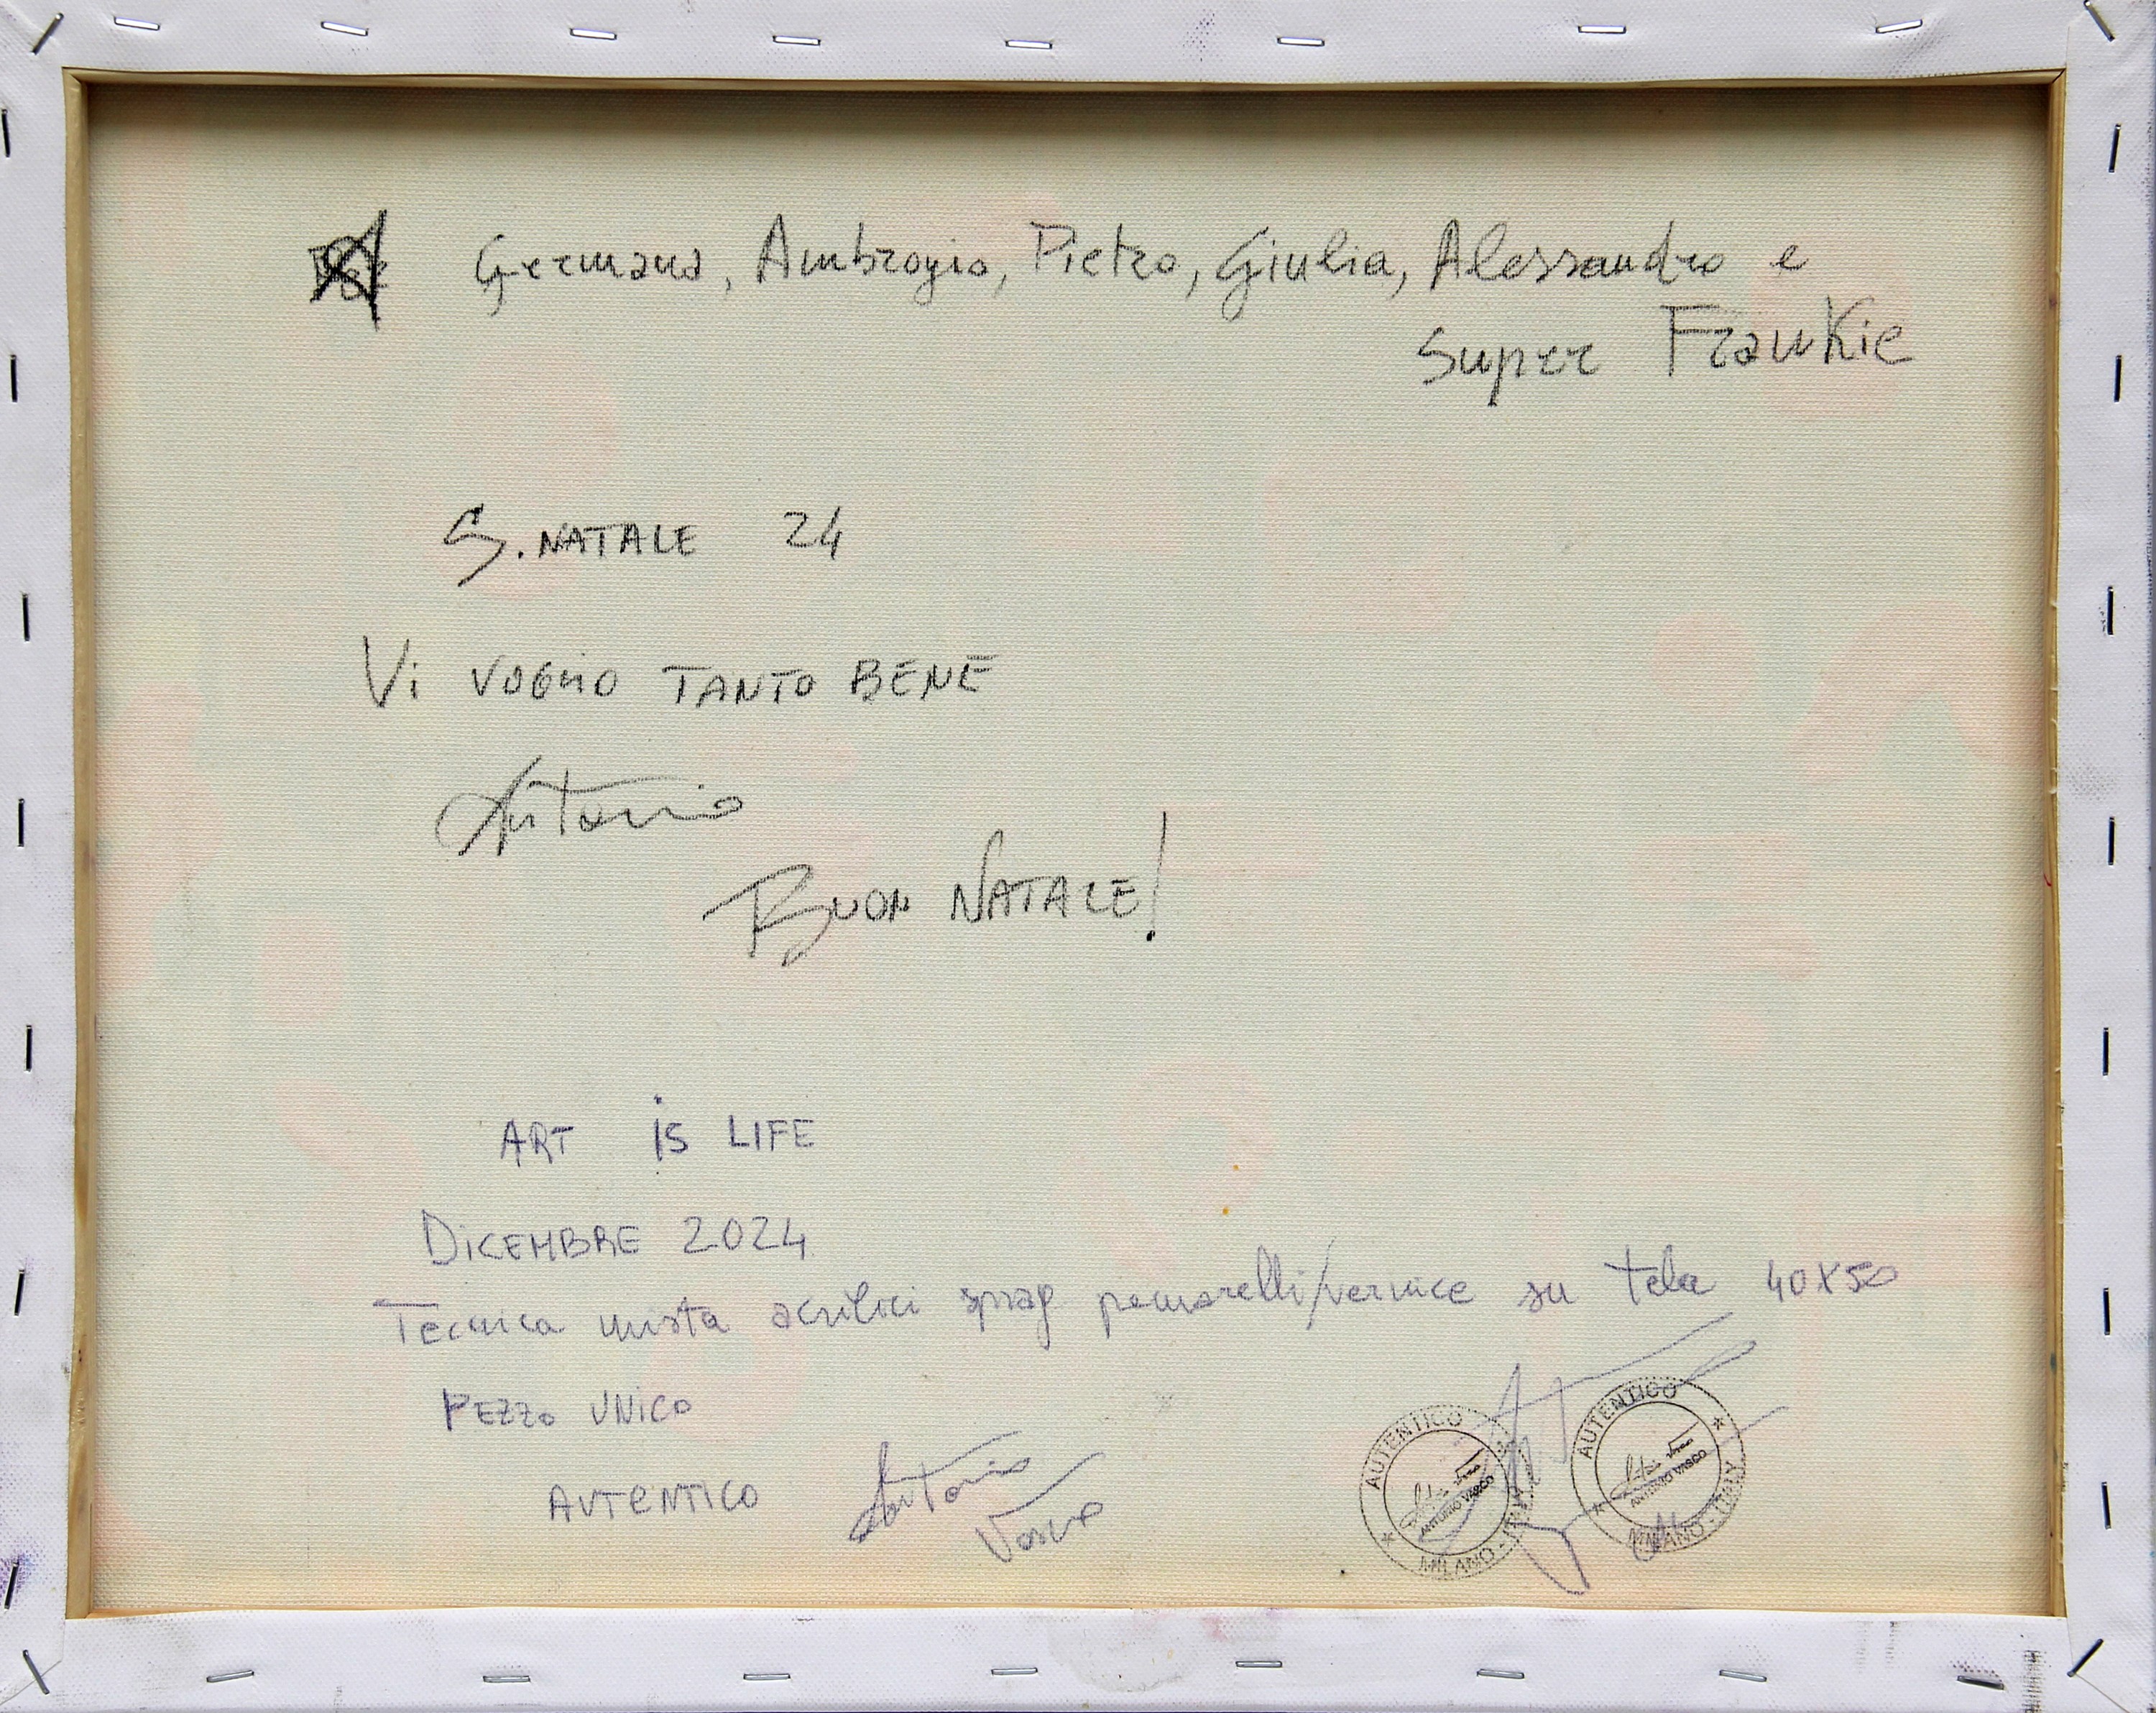 Germana, Ambrogio, Pietro, Giulia, Alessandro e
super Frankie
S. NATALE 24
Vi VOGLIO TANTO BENE
Antonio
BUON NATALE!
ART iS LIFE
DiCEMBRE 2024
Tecnica mista acrilici spray pennarelli/vernice su tela 40X50
PEZZO UNiCO
AUTENTICO Antonio
Vasco
AUTENTICO
ANTONIO VASCO
MILANO - ITALY
AUTENTICO
ANTONIO VASCO
MILANO - ITALY